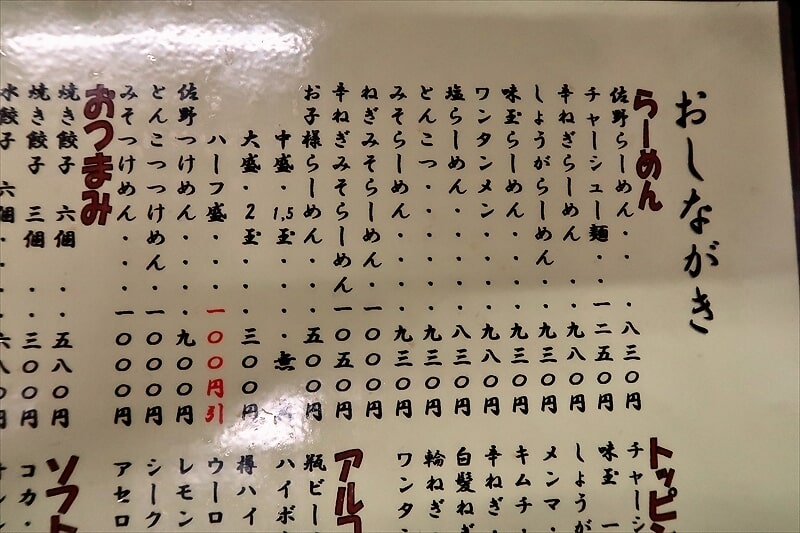 おしながき
らーめん
佐野らーめん・・・八三〇円
チャーシュー麺・・一二五〇円
辛ねぎらーめん・・・九八〇円
しょうがらーめん・・九三〇円
味玉らーめん・・・・九三〇円
ワンタンメン・・・・九八〇円
塩らーめん・・・・・八三〇円
とんこつ・・・・・・九三〇円
みそらーめん・・・・九三〇円
ねぎみそらーめん・一〇〇〇円
辛ねぎみそらーめん一〇五〇円
お子様らーめん・・・五〇〇円
中盛・1,5玉・・・無
大盛・2玉・・・三〇〇円
ハーフ盛・・・一〇〇円引
佐野つけめん・・・・九〇〇円
とんこつつけめん・一〇〇〇円
みそつけめん・・・一〇〇〇円
おつまみ
焼き餃子 六個・・五八〇円
焼き餃子 三個・・三〇〇円
水餃子 六個・・六八〇円
トッピン
チャーシ
味玉 一
しょうが
メンマ・
キムチ・
辛ねぎ・
白髪ねぎ
輪ねぎ・
ワンタン
アルコ
瓶ビー
ハイボ
樽ハイ
ウーロ
レモン
シーク
アセロ
ソフト
コカ・
オレン